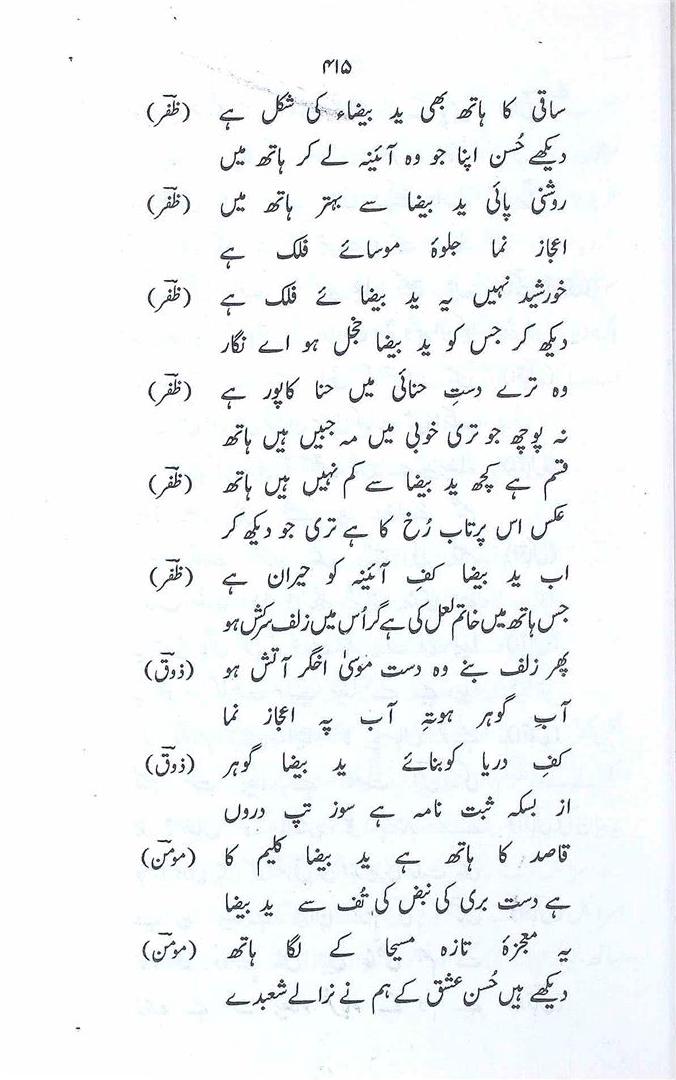 ۴۱۵
ساقی کا ہاتھ بھی ید بیضاء کی شکل ہے (ظفر)
دیکھے حُسن اپنا جو وہ آئینہ لے کر ہاتھ میں
روشنی پائی ید بیضا سے بہتر ہاتھ میں (ظفر)
اعجاز نما جلوۂ موسائے فلک ہے
خورشید نہیں یہ ید بیضا ئے فلک ہے (ظفر)
دیکھ کر جس کو ید بیضا خجل ہو اے نگار
وہ ترے دستِ حنائی میں حنا کاپور ہے (ظفر)
نہ پوچھ جو تری خوبی میں مہ جبیں ہیں ہاتھ
قسم ہے کچھ ید بیضا سے کم نہیں ہیں ہاتھ (ظفر)
عکس اس پرتاب رُخ کا ہے تری جو دیکھ کر
اب ید بیضا کفِ آئینہ کو حیران ہے (ظفر)
جس ہاتھ میں خاتم لعل کی ہے گر اُس میں زلف سرکش ہو
پھر زلف بنے وہ دست موسیٰ اخگر آتش ہو (ذوق)
آبِ گوہر ہوتہ آب پہ اعجاز نما
کفِ دریا کوبنائے ید بیضا گوہر (ذوق)
از بسکہ ثبت نامہ ہے سوز تپ دروں
قاصد کا ہاتھ ہے ید بیضا کلیم کا (مومن)
ہے دست بری کی نبض کی تُف سے ید بیضا
یہ معجزۂ تازہ مسیحا کے لگا ہاتھ (مومن)
دیکھے ہیں حُسن عشق کے ہم نے نرالے شعبدے